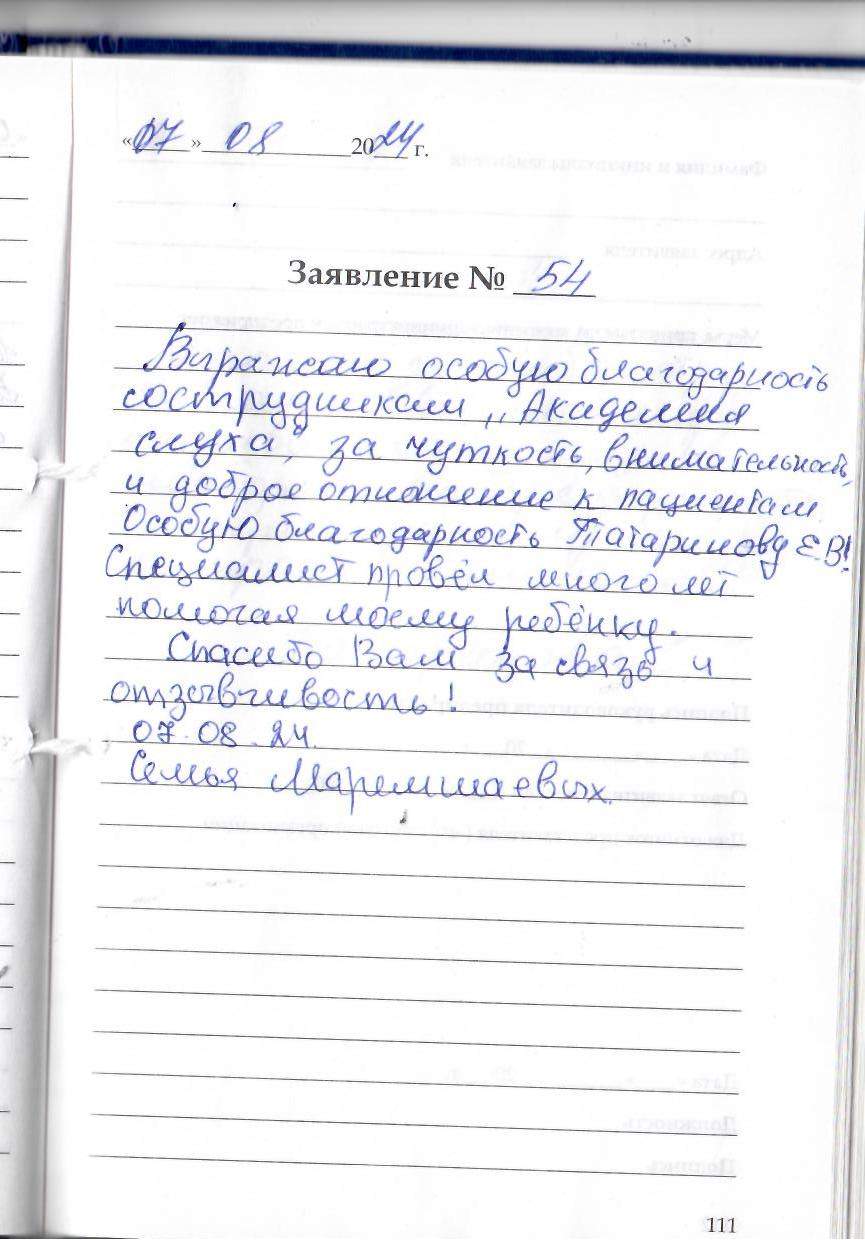 «07» 08 2024 г.
Заявление № 54
Выражаю особую благодарность
сострудникам „Академия
слуха", за чуткость, внимательность,
и доброе отношение к пациентам.
Особую благодарность Татаринову Е.В!
Специалист провёл много лет
помогая моему ребёнку.
Спасибо Вам за связь и
отзывчивость!
07.08.24.
Семья
111